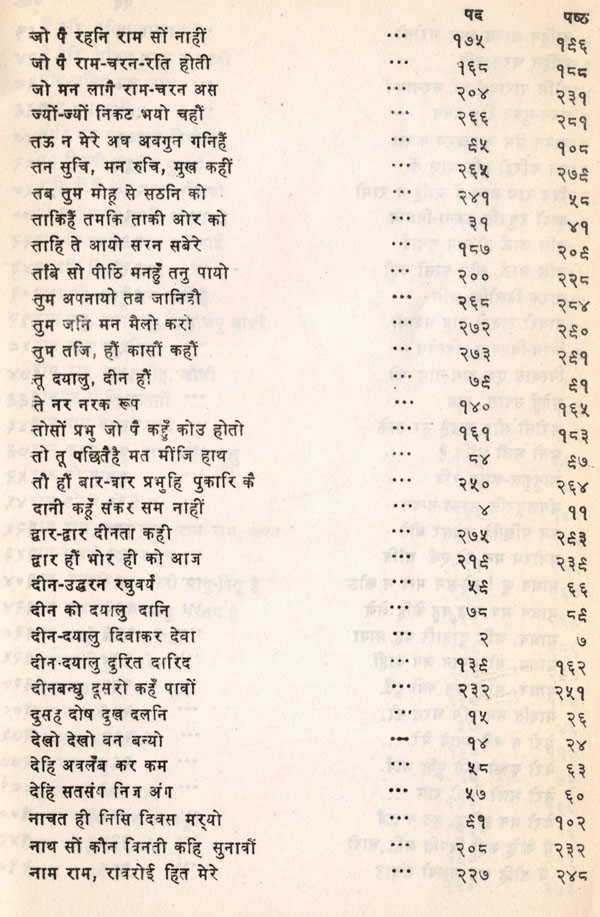 पद पृष्ठ
जो पै रहनि राम सों नाहीं ··· १७५ १९६
जो पै राम-चरन-रति होती ··· १६८ १८८
जो मन लागै राम-चरन अस ··· २०४ २३१
ज्यों-ज्यों निकट भयो चहौं ··· २६६ २८१
तऊ न मेरे अघ अवगुन गनिहैं ··· ९५ १०८
तन सुचि, मन रुचि, मुख कहीं ··· २६५ २७९
तब तुम मोहू से सठनि को ··· २४१ ५८
ताकिहैं तमकि ताकी ओर को ··· ३१ ४१
ताहि ते आयो सरन सबेरे ··· १८७ २०९
ताँबे सो पीठि मनहुँ तनु पायो ··· २०० २२८
तुम अपनायो तब जानिहौ ··· २६८ २८४
तुम जनि मन मैलो करो ··· २७२ २९०
तुम तजि, हौं कासौं कहौं ··· २७३ २९१
तू दयालु, दीन हौं ··· ७९ ९१
ते नर नरक रूप ··· १४० १६५
तोसों प्रभु जो पै कहुँ कोउ होतो ··· १६१ १८३
तो तू पछितैहै मत मींजि हाथ ··· ८४ ९७
तौ हौं बार-बार प्रभुहि पुकारि कै ··· २५० २६४
दानी कहूँ संकर सम नाहीं ··· ४ ११
द्वार-द्वार दीनता कही ··· २७५ २९३
द्वार हौं भोर ही को आज ··· २१९ २३९
दीन-उद्धरन रघुवर्य ··· ५९ ६६
दीन को दयालु दानि ··· ७८ ८९
दीन-दयालु दिवाकर देवा ··· २ ७
दीन-दयालु दुरित दारिद ··· १३९ १६२
दीनबन्धु दूसरो कहँ पावों ··· २३२ २५१
दुसह दोष दुख दलनि ··· १५ २६
देखो देखो बन बन्यो ··· १४ २४
देहि अवलंब कर कम ··· ५८ ६३
देहि सतसंग निज अंग ··· ५७ ६०
नाचत ही निसि दिवस मर्‌यो ··· ९१ १०२
नाथ सों कौन बिनती कहि सुनावौं ··· २०८ २३२
नाम राम, रावरोई हित मेरे ··· २२७ २४८